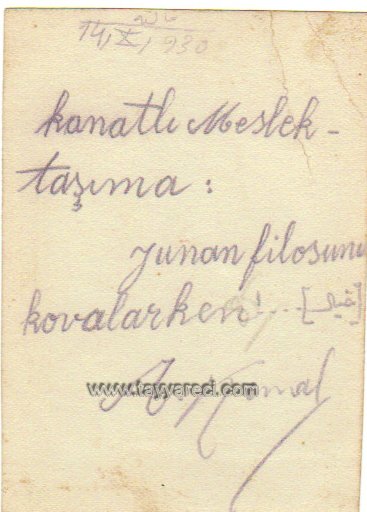 14, X, 930
kanatlı Meslek-
taşıma :
yunan filosunu
kovalarken! ...
www.tayyareci.com
Kemal